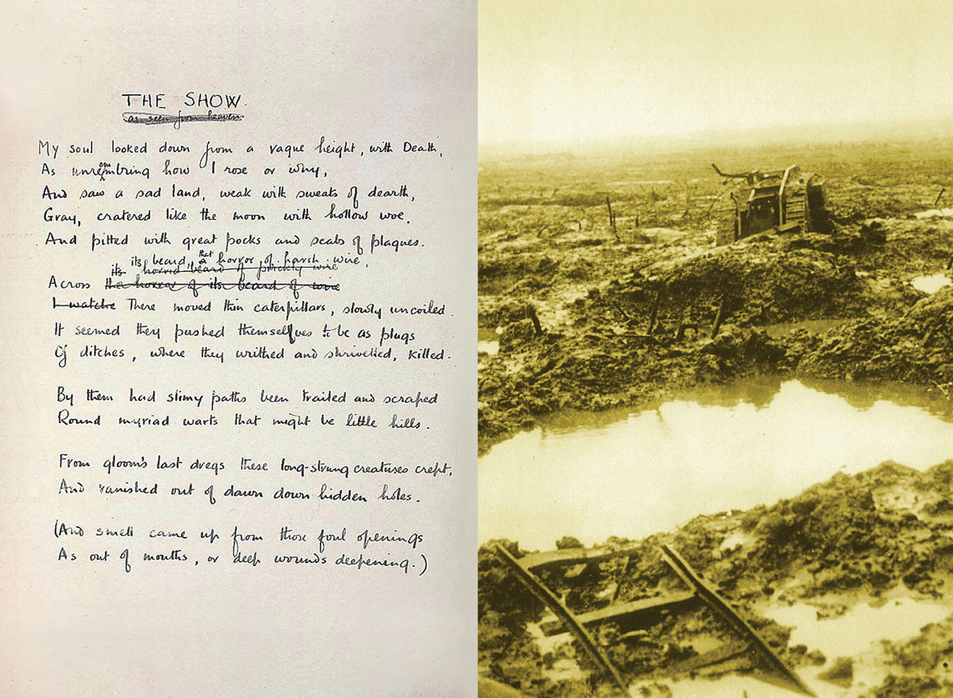 THE SHOW.
as seen from heaven.
My soul looked down from a vague height, with Death,
As unremembring how I rose or why,
And saw a sad land, weak with sweats of dearth,
Gray, cratered like the moon with hollow woe,
And pitted with great pocks and scabs of plagues.
its beard, that horror of harsh wire,
its horrid beard of prickly wire
Across the horror of its beard of wire
I watche There moved thin caterpillars, slowly uncoiled.
It seemed they pushed themselves to be as plugs
Of ditches, where they writhed and shrivelled, killed.
By them had slimy paths been trailed and scraped
Round myriad warts that might be little hills.
From gloom's last dregs these long-strung creatures crept,
And vanished out of dawn down hidden holes.
(And smell came up from those foul openings
As out of mouths, or deep wounds deepening.)